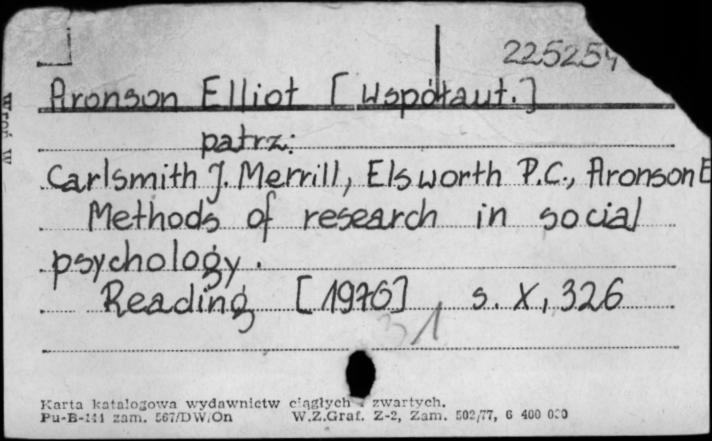 225254
Aronson Elliot [współaut.]
patrz:
Carlsmith J. Merrill, Elsworth P.C., Aronson E
Methods of research in social
psychology.
Reading [1976] s. X, 326
31
Karta katalogowa wydawnictw ciągłych i zwartych.
Pu-B-141 zam. 567/DW/On W.Z.Graf. Z-2, Zam. 502/77, 6 400 000